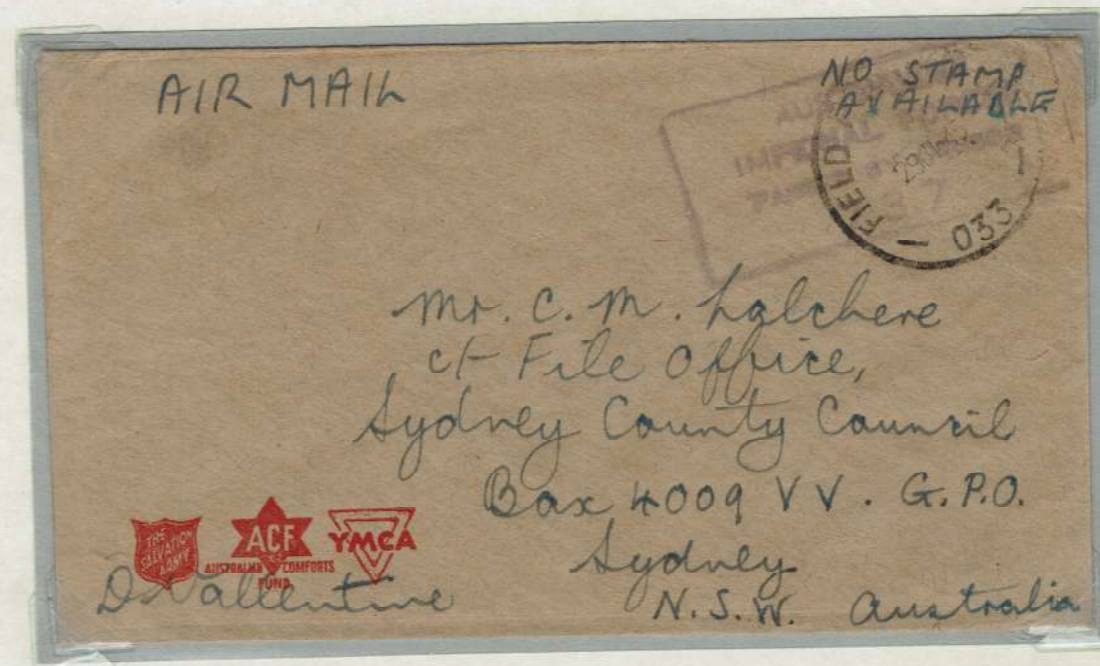 AIR MAIL
NO STAMP
AVAILABLE
IMPERIAL
FIELD
033
Mr. C. M. Lalchere
c/- File Office,
Sydney County Council
Box 4009 VV. G.P.O.
Sydney
N.S.W. Australia
THE
SALVATION
ARMY
ACF
AUSTRALIAN COMFORTS
FUND
YMCA
D Vallentine